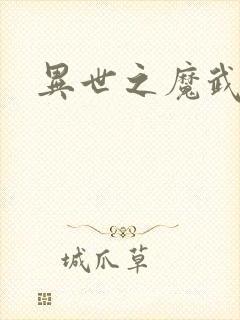 異世之魔武
城爪草